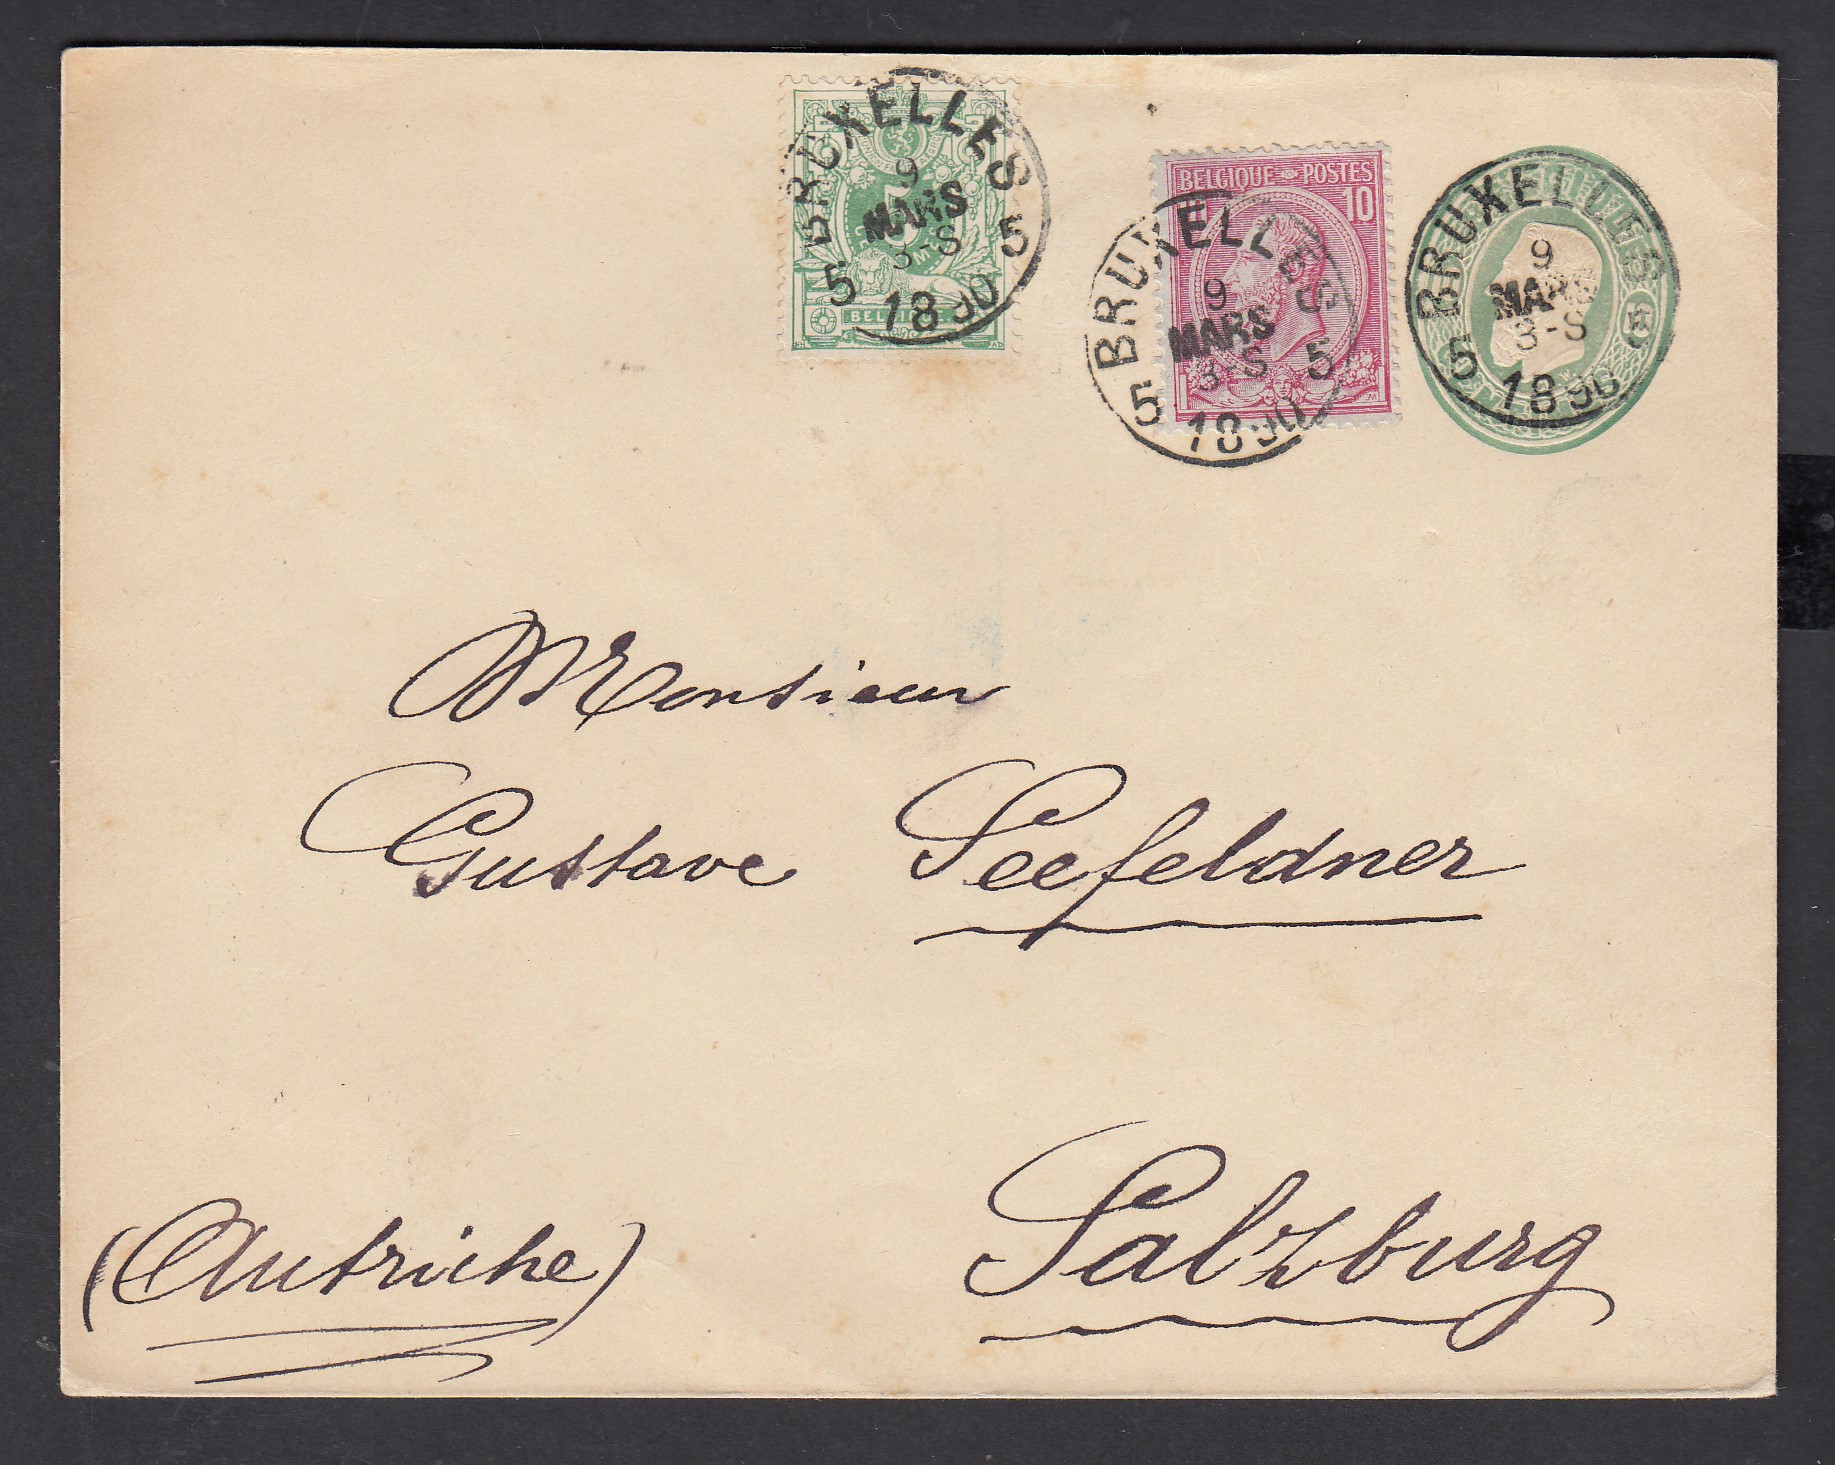 BRUXELLES
9
MARS
3-S
5 5
1890
BELGIQUE POSTES
10
BRUXELLES
9
MARS
3-S
5 5
1890
BRUXELLES
9
MARS
3-S
5
1890
Monsieur
Gustave Seefeldner
Salzburg
(Autriche)